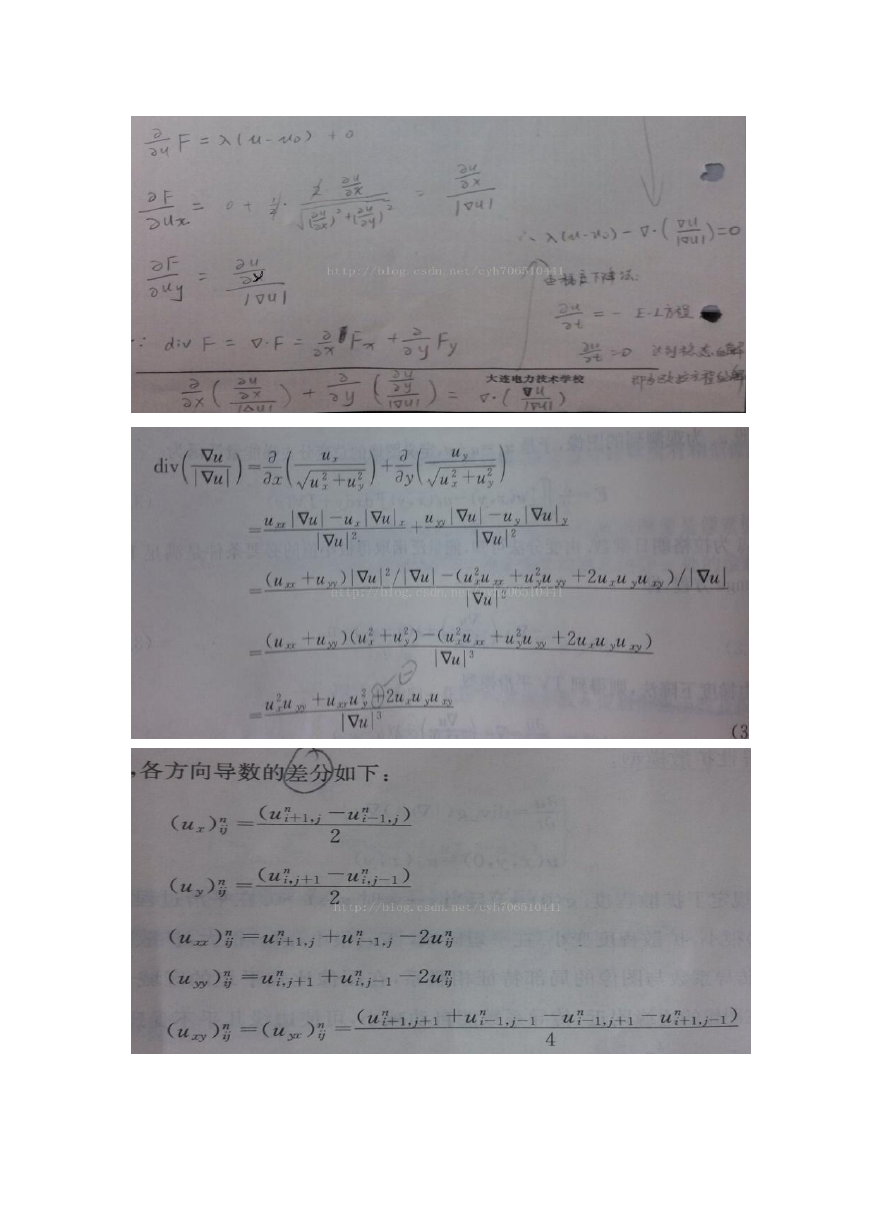 ∂/∂u F = λ(u - u₀) + 0
∂F/∂uₓ = 0 + 1/2 · 2 ∂u/∂x / √((∂u/∂x)² + (∂u/∂y)²) = ∂u/∂x / |∇u|
∴ λ(u-u₀) - ∇·(∇u/|∇u|) = 0
∂F/∂u_y = ∂u/∂y / |∇u|
http://blog.csdn.net/cyh706510441
下降法:
∂u/∂t = - E·L方程
∵ div F = ∇·F = ∂/∂x Fₓ + ∂/∂y F_y
∂u/∂t = 0
大连电力技术学校
∂/∂x (∂u/∂x / |∇u|) + ∂/∂y (∂u/∂y / |∇u|) = ∇·(∇u/|∇u|)
div(∇u/|∇u|) = ∂/∂x (uₓ/√(uₓ²+u_y²)) + ∂/∂y (u_y/√(uₓ²+u_y²))
= (uₓₓ|∇u| - uₓ|∇u|ₓ)/|∇u|² + (u_yy|∇u| - u_y|∇u|_y)/|∇u|²
= ((uₓₓ + u_yy)|∇u|²/|∇u| - (uₓ²uₓₓ + u_y²u_yy + 2uₓu_yu_xy)/|∇u|)/|∇u|²
http://blog.csdn.net/cyh706510441
= ((uₓₓ + u_yy)(uₓ² + u_y²) - (uₓ²uₓₓ + u_y²u_yy + 2uₓu_yu_xy))/|∇u|³
−
= (uₓ²u_yy + uₓₓu_y² + 2uₓu_yu_xy)/|∇u|³
(3
,各方向导数的差分如下:
(uₓ)ⁿᵢⱼ = (uⁿ_{i+1,j} - uⁿ_{i-1,j})/2
(u_y)ⁿᵢⱼ = (uⁿ_{i,j+1} - uⁿ_{i,j-1})/2
http://blog.csdn.net/cyh706510441
(uₓₓ)ⁿᵢⱼ = uⁿ_{i+1,j} + uⁿ_{i-1,j} - 2uⁿᵢⱼ
(u_yy)ⁿᵢⱼ = uⁿ_{i,j+1} + uⁿ_{i,j-1} - 2uⁿᵢⱼ
(u_xy)ⁿᵢⱼ = (u_yx)ⁿᵢⱼ = (uⁿ_{i+1,j+1} + uⁿ_{i-1,j-1} - uⁿ_{i-1,j+1} - uⁿ_{i+1,j-1})/4